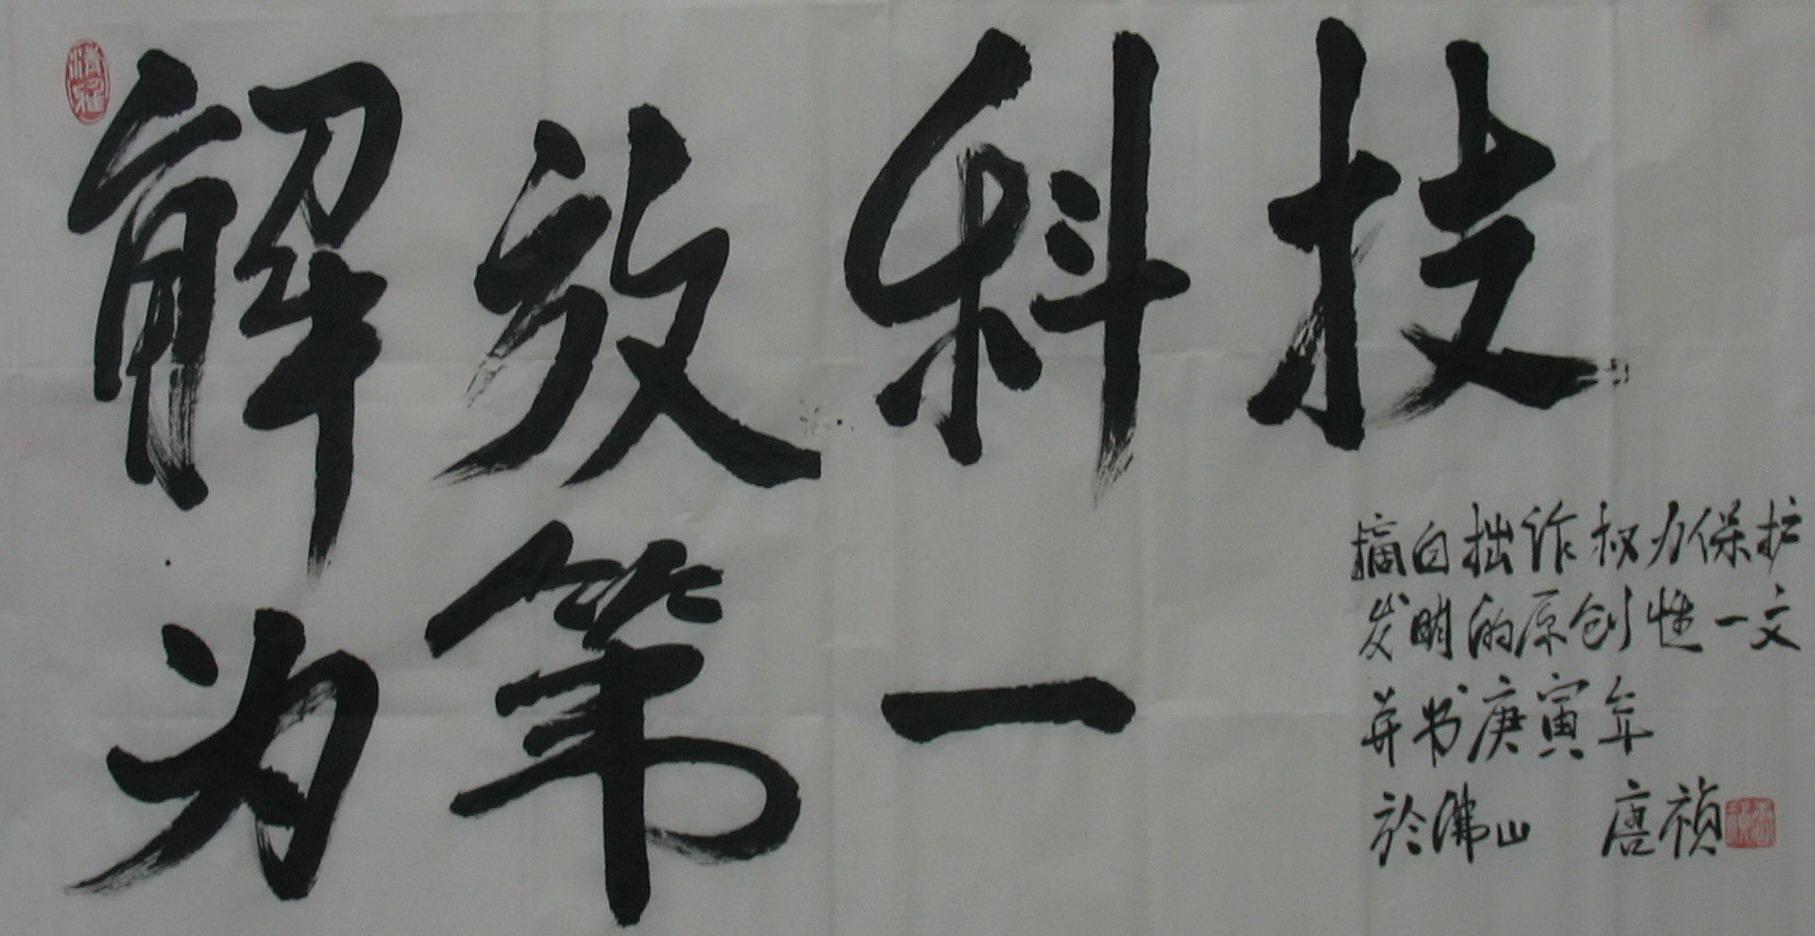 解放科技
为第一
摘自拙作权力保护
发明的原创性一文
并书庚寅年
於佛山 唐祯